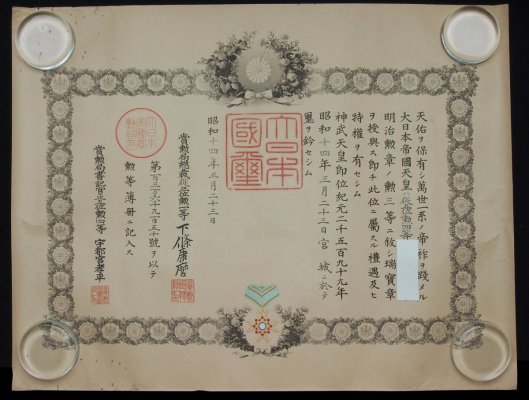 天佑ヲ保有シ萬世一系ノ帝祚ヲ踐メル
大日本帝國天皇ハ勲四等
明治勲章ノ勲三等ニ敍シ瑞寶章
ヲ授與ス即チ此位ニ屬スル禮遇及ヒ
特權ヲ有セシム
神武天皇即位紀元二千五百九十九年
昭和十四年三月二十三日宮城ニ於テ
璽ヲ鈐セシム
大日本
國璽
昭和十四年三月二十三日
賞勲局總裁從三位勲一等下條康麿
第百三万六千九百五十號ヲ以テ
勲等簿冊ニ記入ス
賞勲局書記官勲四等宇都宮孝平